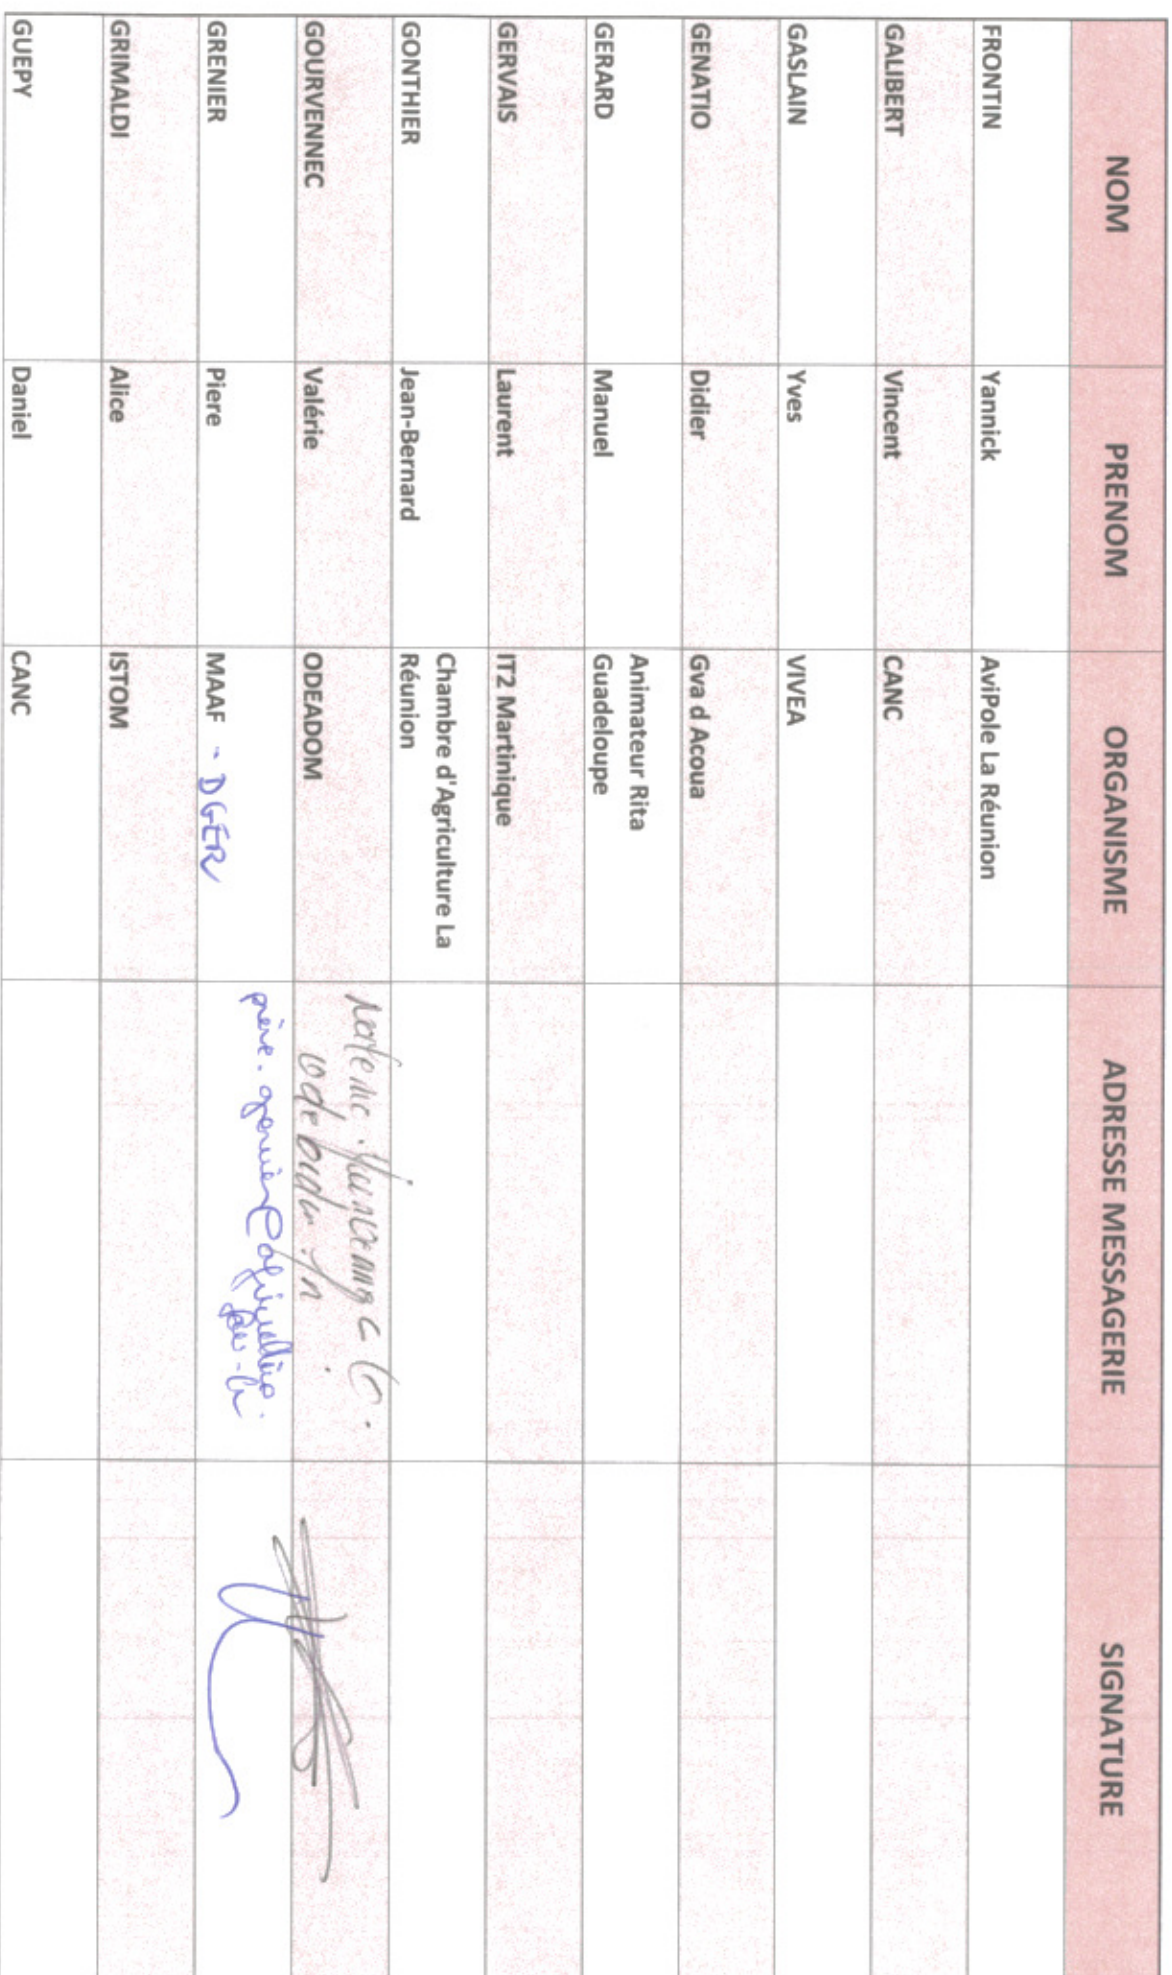 NOM PRENOM ORGANISME ADRESSE MESSAGERIE SIGNATURE
FRONTIN Yannick AviPole La Réunion
GALIBERT Vincent CANC
GASLAIN Yves VIVEA
GENATIO Didier Gva d Acoua
GERARD Manuel Animateur Rita
Guadeloupe
GERVAIS Laurent IT2 Martinique
GONTHIER Jean-Bernard Chambre d'Agriculture La
Réunion
GOURVENNEC Valérie ODEADOM
GRENIER Piere MAAF - DGER
GRIMALDI Alice ISTOM
GUEPY Daniel CANC